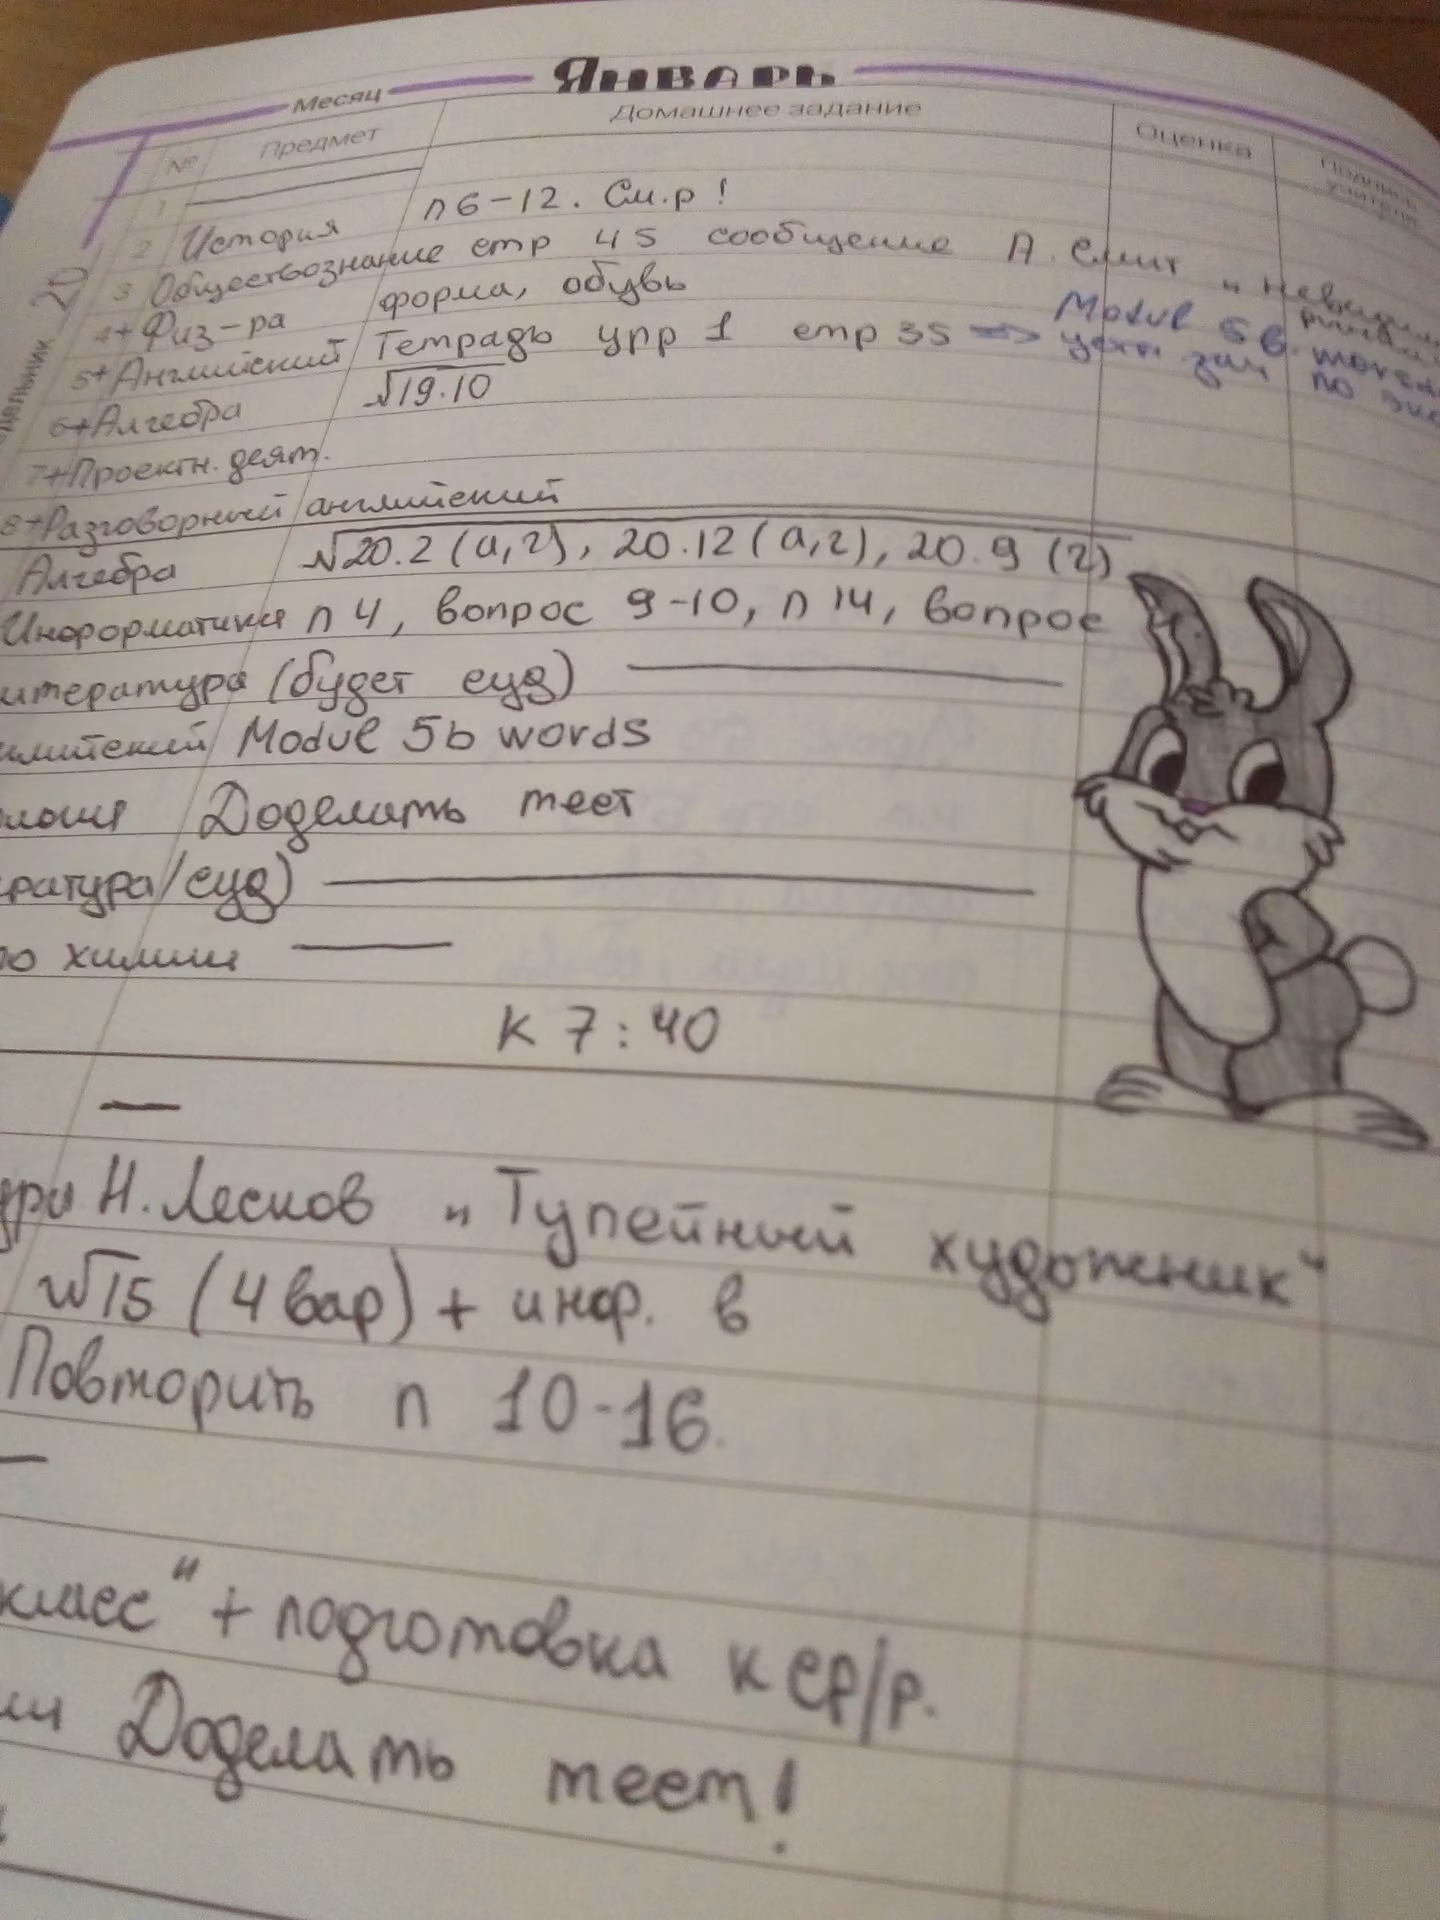 Месяц Январь
№ Предмет Домашнее задание Оценка Подпись учителя
20
1
2 История п 6-12. См.р!
3 Обществознание стр 45 сообщение А. Смит „Невидим
4+ Физ-ра форма, обувь
5+ Английский Тетрадь упр 1 стр 35 => Modul 5b.
по
6+ Алгебра √19.10
7+ Проектн. деят.
8+ Разговорный английский
Алгебра √20.2 (а,г), 20.12 (а,г), 20.9 (г)
Информатика п 4, вопрос 9-10, п 14, вопрос
итература (будет суд)
глийский Modul 5b words
Доделать тест
ратура/суд)
по химии
К 7:40
Н. Лесков „Тупейный художник“
√15 (4 вар) + инф. в
Повторить п 10-16.
класс" + подготовка к ср/р.
Доделать тест!